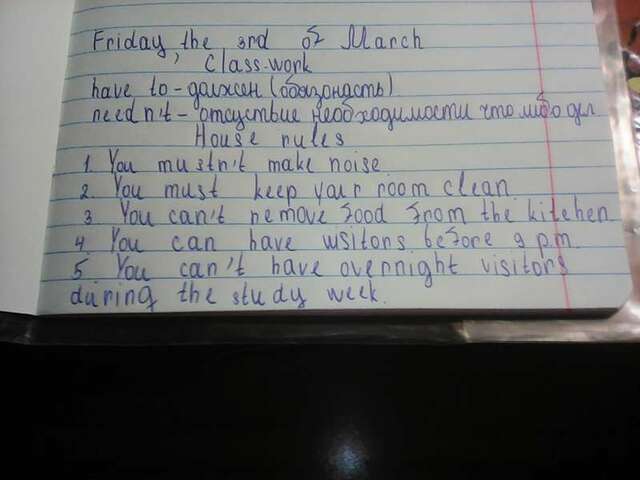 Friday, the 3rd of March
Class-work
have to - должен (обязоность)
need n't - отсуствие необходимости что либо дел
House rules
1. You mustn't make noise
2. You must keep your room clean
3 You can't remove food from the kitchen
4 You can have wsitors before 9 pm
5 You can't have overnight visitors
during the study week.